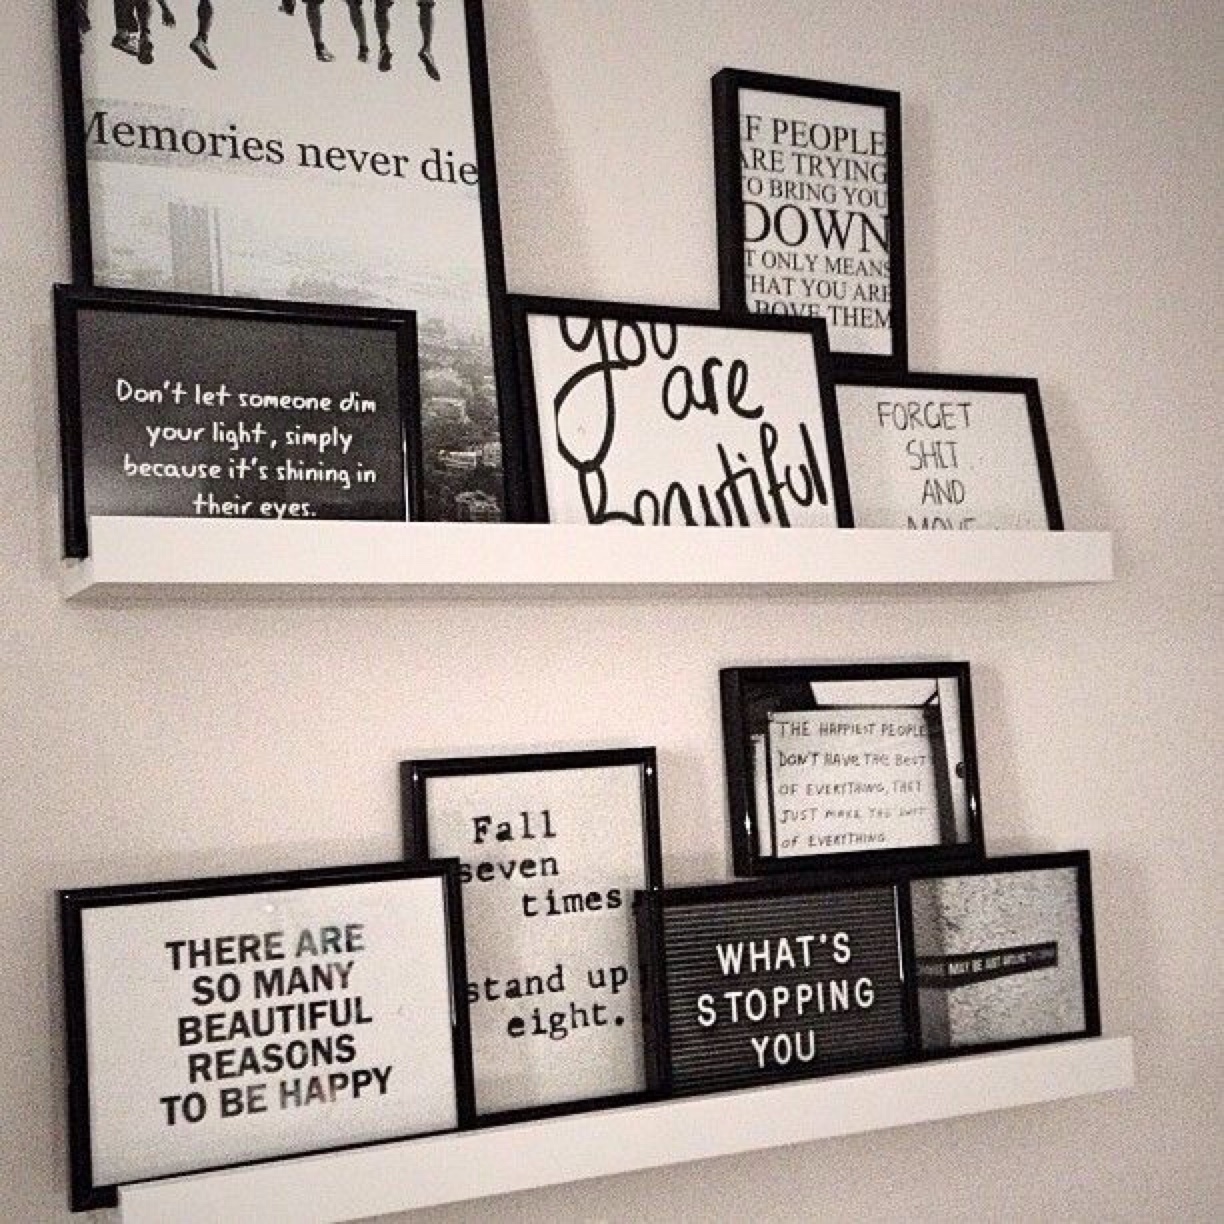 Memories never die
Don't let someone dim
your light, simply
because it's shining in
their eyes.
you
are
Beautiful
F PEOPLE
ARE TRYING
O BRING YOU
DOWN
T ONLY MEANS
HAT YOU ARE
ABOVE THEM
FORGET
SHIT
AND
MOVE
THERE ARE
SO MANY
BEAUTIFUL
REASONS
TO BE HAPPY
Fall
seven
times,
stand up
eight.
THE HAPPIEST PEOPLE
DON'T HAVE THE BEST
OF EVERYTHING, THEY
JUST MAKE THE BEST
OF EVERYTHING.
WHAT'S
STOPPING
YOU
MAY BE JUST